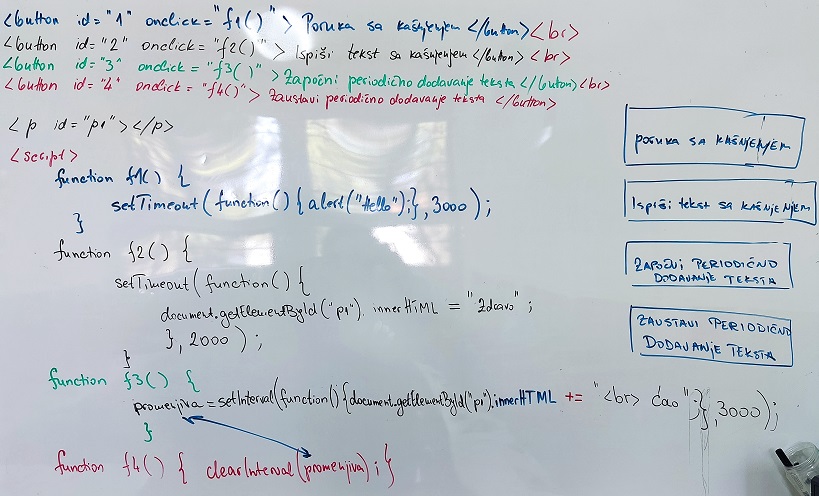 <button id="1" onclick="f1()"> Poruka sa kašnjenjem </button><br>
<button id="2" onclick="f2()"> Ispiši tekst sa kašnjenjem </button> <br>
<button id="3" onclick="f3()"> Započni periodično dodavanje teksta </button><br>
<button id="4" onclick="f4()"> Zaustavi periodično dodavanje teksta </button>
<p id="p1"></p>
<script>
function f1() {
setTimeout(function(){alert("Hello");},3000);
}
function f2() {
setTimeout(function() {
document.getElementById("p1").innerHTML = "Zdravo";
}, 2000);
}
function f3() {
promenjiva=setInterval(function(){document.getElementById("p1").innerHTML += "<br> ćao";},3000);
}
function f4() { clearInterval(promenjiva); }
PORUKA SA KAŠNJENJEM
Ispiši tekst SA KAŠNJENJEM
ZAPOČNI PERIODIČNO
DODAVANJE TEKSTA
ZAUSTAVI PERIODIČNO
DODAVANJE TEKSTA